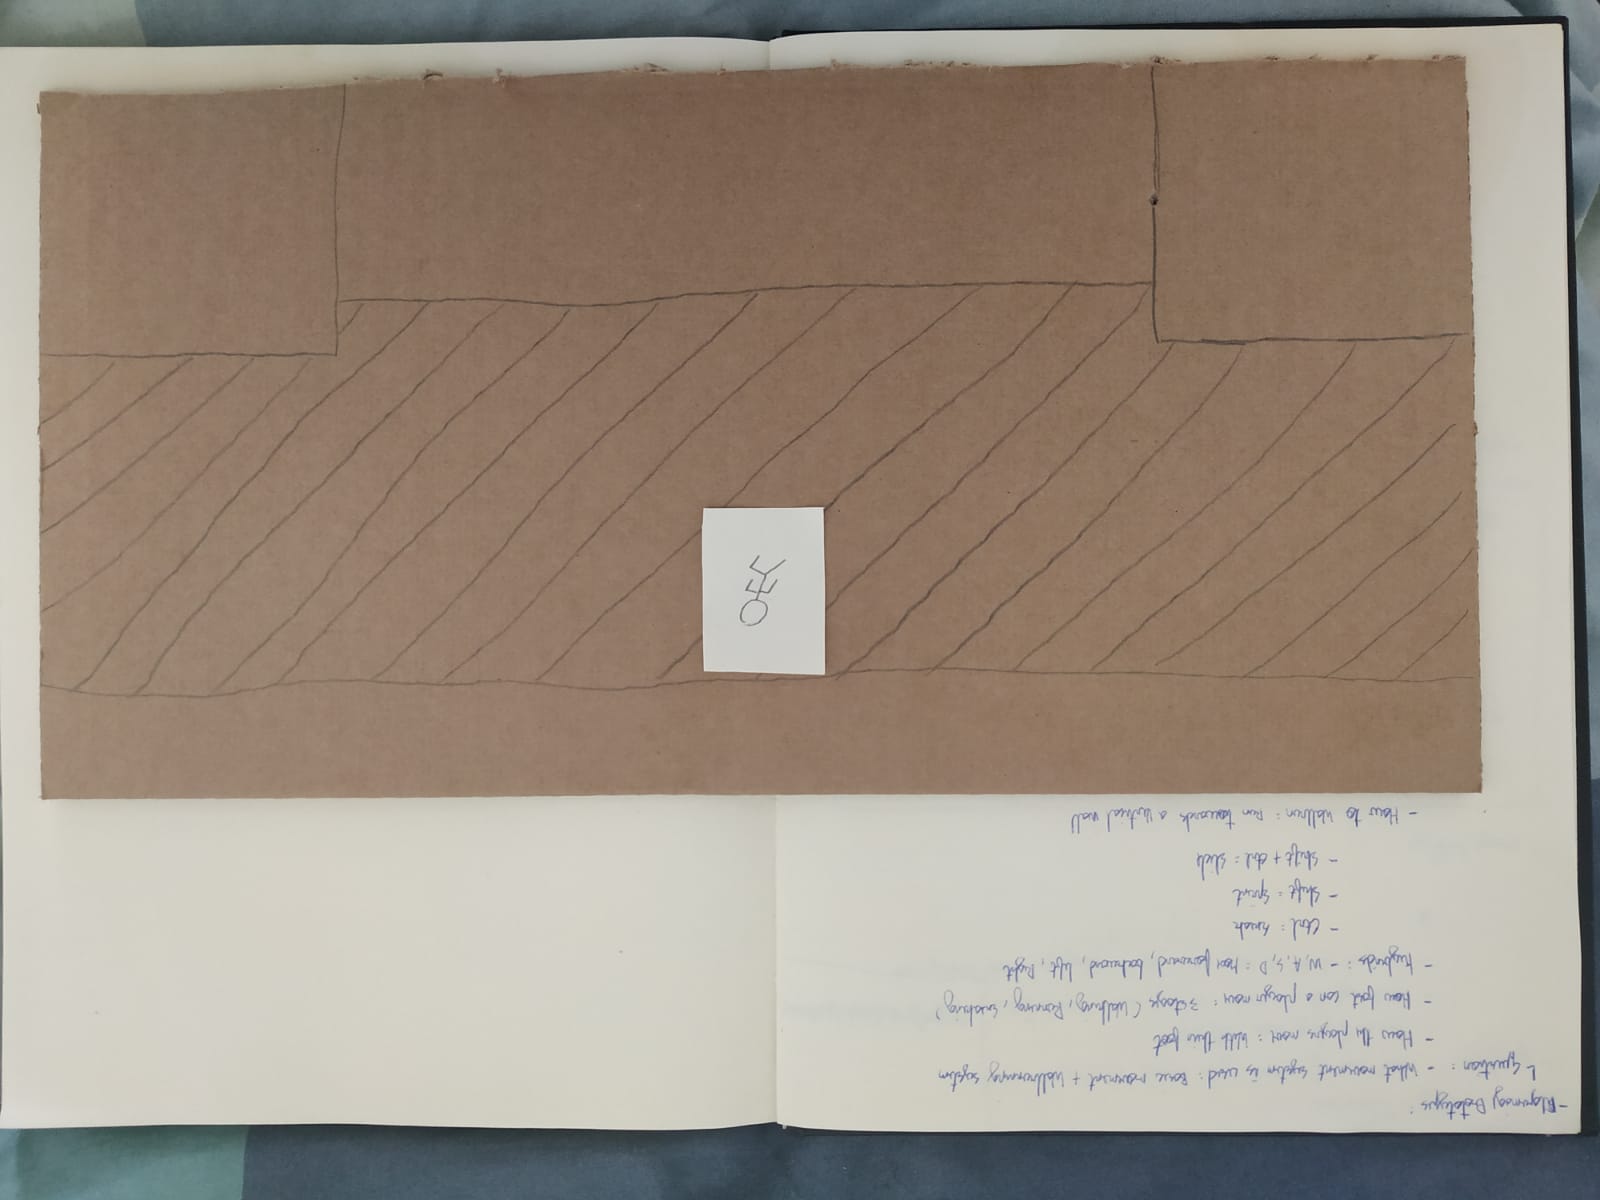 - Prototypes:
Question: - What movement system is used: Basic movement + Wallrunning system
- How the players move: With their foot
- How fast can a player move: 3 stages (Walking, Running, Sneaking)
- Keybinds: - W, A, S, D: Move forward, backward, left, Right
- Ctrl: Sneak
- Shift: Sprint
- Shift + Ctrl: Slide
- How to Wallrun: Run towards a Vertical wall